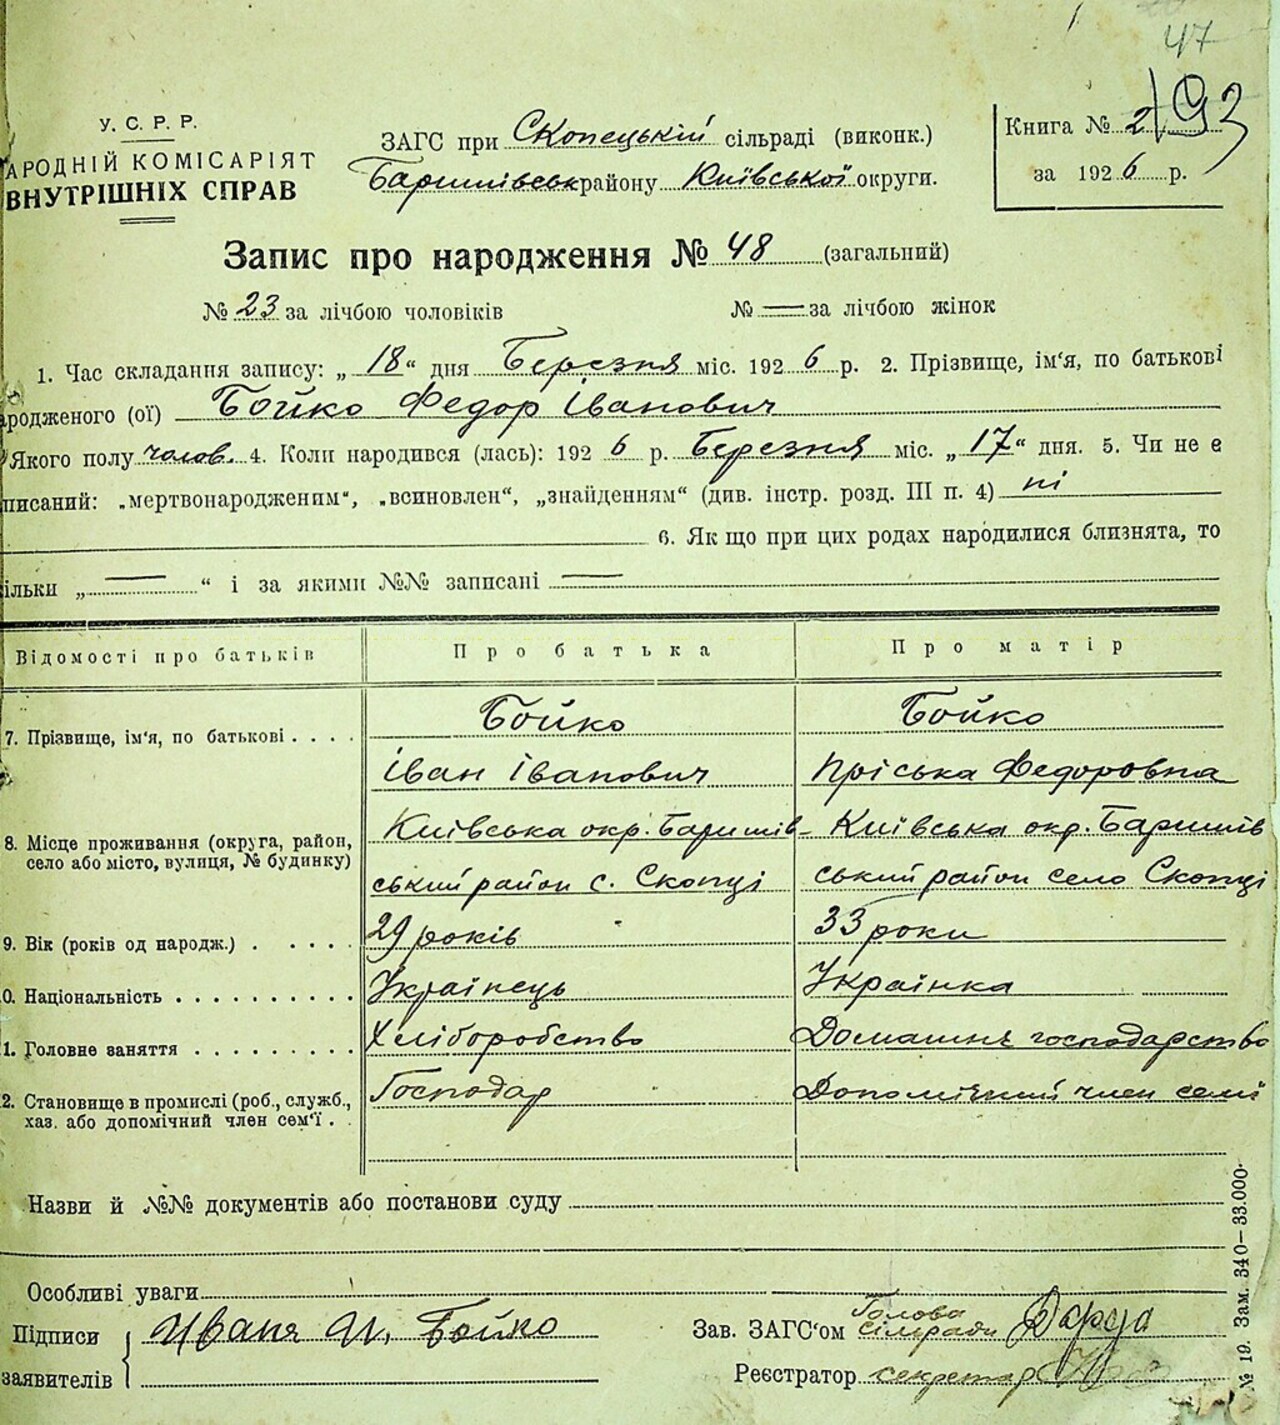 47
У. С. Р. Р.
АРОДНІЙ КОМІСАРІЯТ
ВНУТРІШНІХ СПРАВ
ЗАГС при Скопецькій сільраді (виконк.)
Баришівськ району Київської округи.
Книга № 2 193
за 1926 р.
Запис про народження № 48 (загальний)
№ 23 за лічбою чоловіків № — за лічбою жінок
1. Час складання запису: „18“ дня Березня міс. 1926 р. 2. Прізвище, ім‘я, по батькові
ародженого (ої) Бойко Федор Іванович
Якого полу чолов. 4. Коли народився (лась): 1926 р. Березня міс. „17“ дня. 5. Чи не є
писаний: „мертвонародженим“, „всиновлен“, „знайденням“ (див. інстр. розд. III п. 4) ні
6. Як що при цих родах народилися близнята, то
ільки „—“ і за якими №№ записані —
Відомості про батьків Про батька Про матір
7. Прізвище, ім‘я, по батькові . . . . Бойко Бойко
Іван Іванович Пріська Федоровна
8. Місце проживання (округа, район, село або місто, вулиця, № будинку) Київська окр. Баришів- Київська окр. Баришів
ський район с. Скопці ський район село Скопці
9. Вік (років од народж.) . . . . . 29 років 33 роки
0. Національність . . . . . . . . . . Українець Українка
1. Головне заняття . . . . . . . . . Хліборобство Домашнє господарство
2. Становище в промислі (роб., служб., Господар Допомічний член семї
хаз. або допомічний член сем‘ї . .
Назви й №№ документів або постанови суду
Особливі уваги
Підписи заявителів Иваня И. Бойко
Зав. ЗАГС‘ом Голова сілради
Реєстратор секретар
№ 19. Зам. 340—33.000.